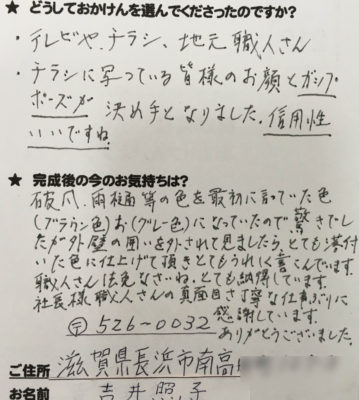 ★ どうしておかけんを選んでくださったのですか?
・テレビや、チラシ、地元職人さん
・チラシに写っている皆様のお顔とガッツ
ポーズが 決め手となりました。信用性
いいですね。
★ 完成後の今のお気持ちは?
破風、雨樋等の色を最初に言っていた色
(ブラウン色)が(グレー色)になっていたので驚きでし
たが外壁の囲いを外されて見ましたら、とても落付
いた色に仕上げて頂きとてもうれしく喜こんでいます。
職人さんは流石ですね。とても納得しています。
社長様、職人さんの真面目さ丁寧な仕事ぶりに
感謝しています。
〒526-0032 ありがとうございました。
ご住所 滋賀県長浜市南高
お名前 吉井照子